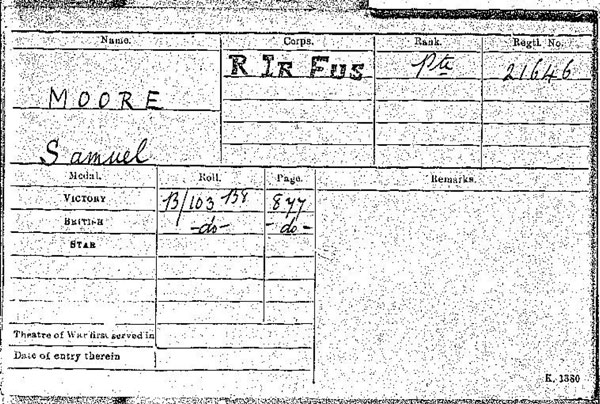 Name. Corps. Rank. Regtl. No.
R IR FUS Pte 21646
MOORE
Samuel
Medal. Roll. Page. Remarks.
VICTORY B/103 B8 877
BRITISH -do- -do-
STAR
Theatre of War first served in
Date of entry therein
K. 1380